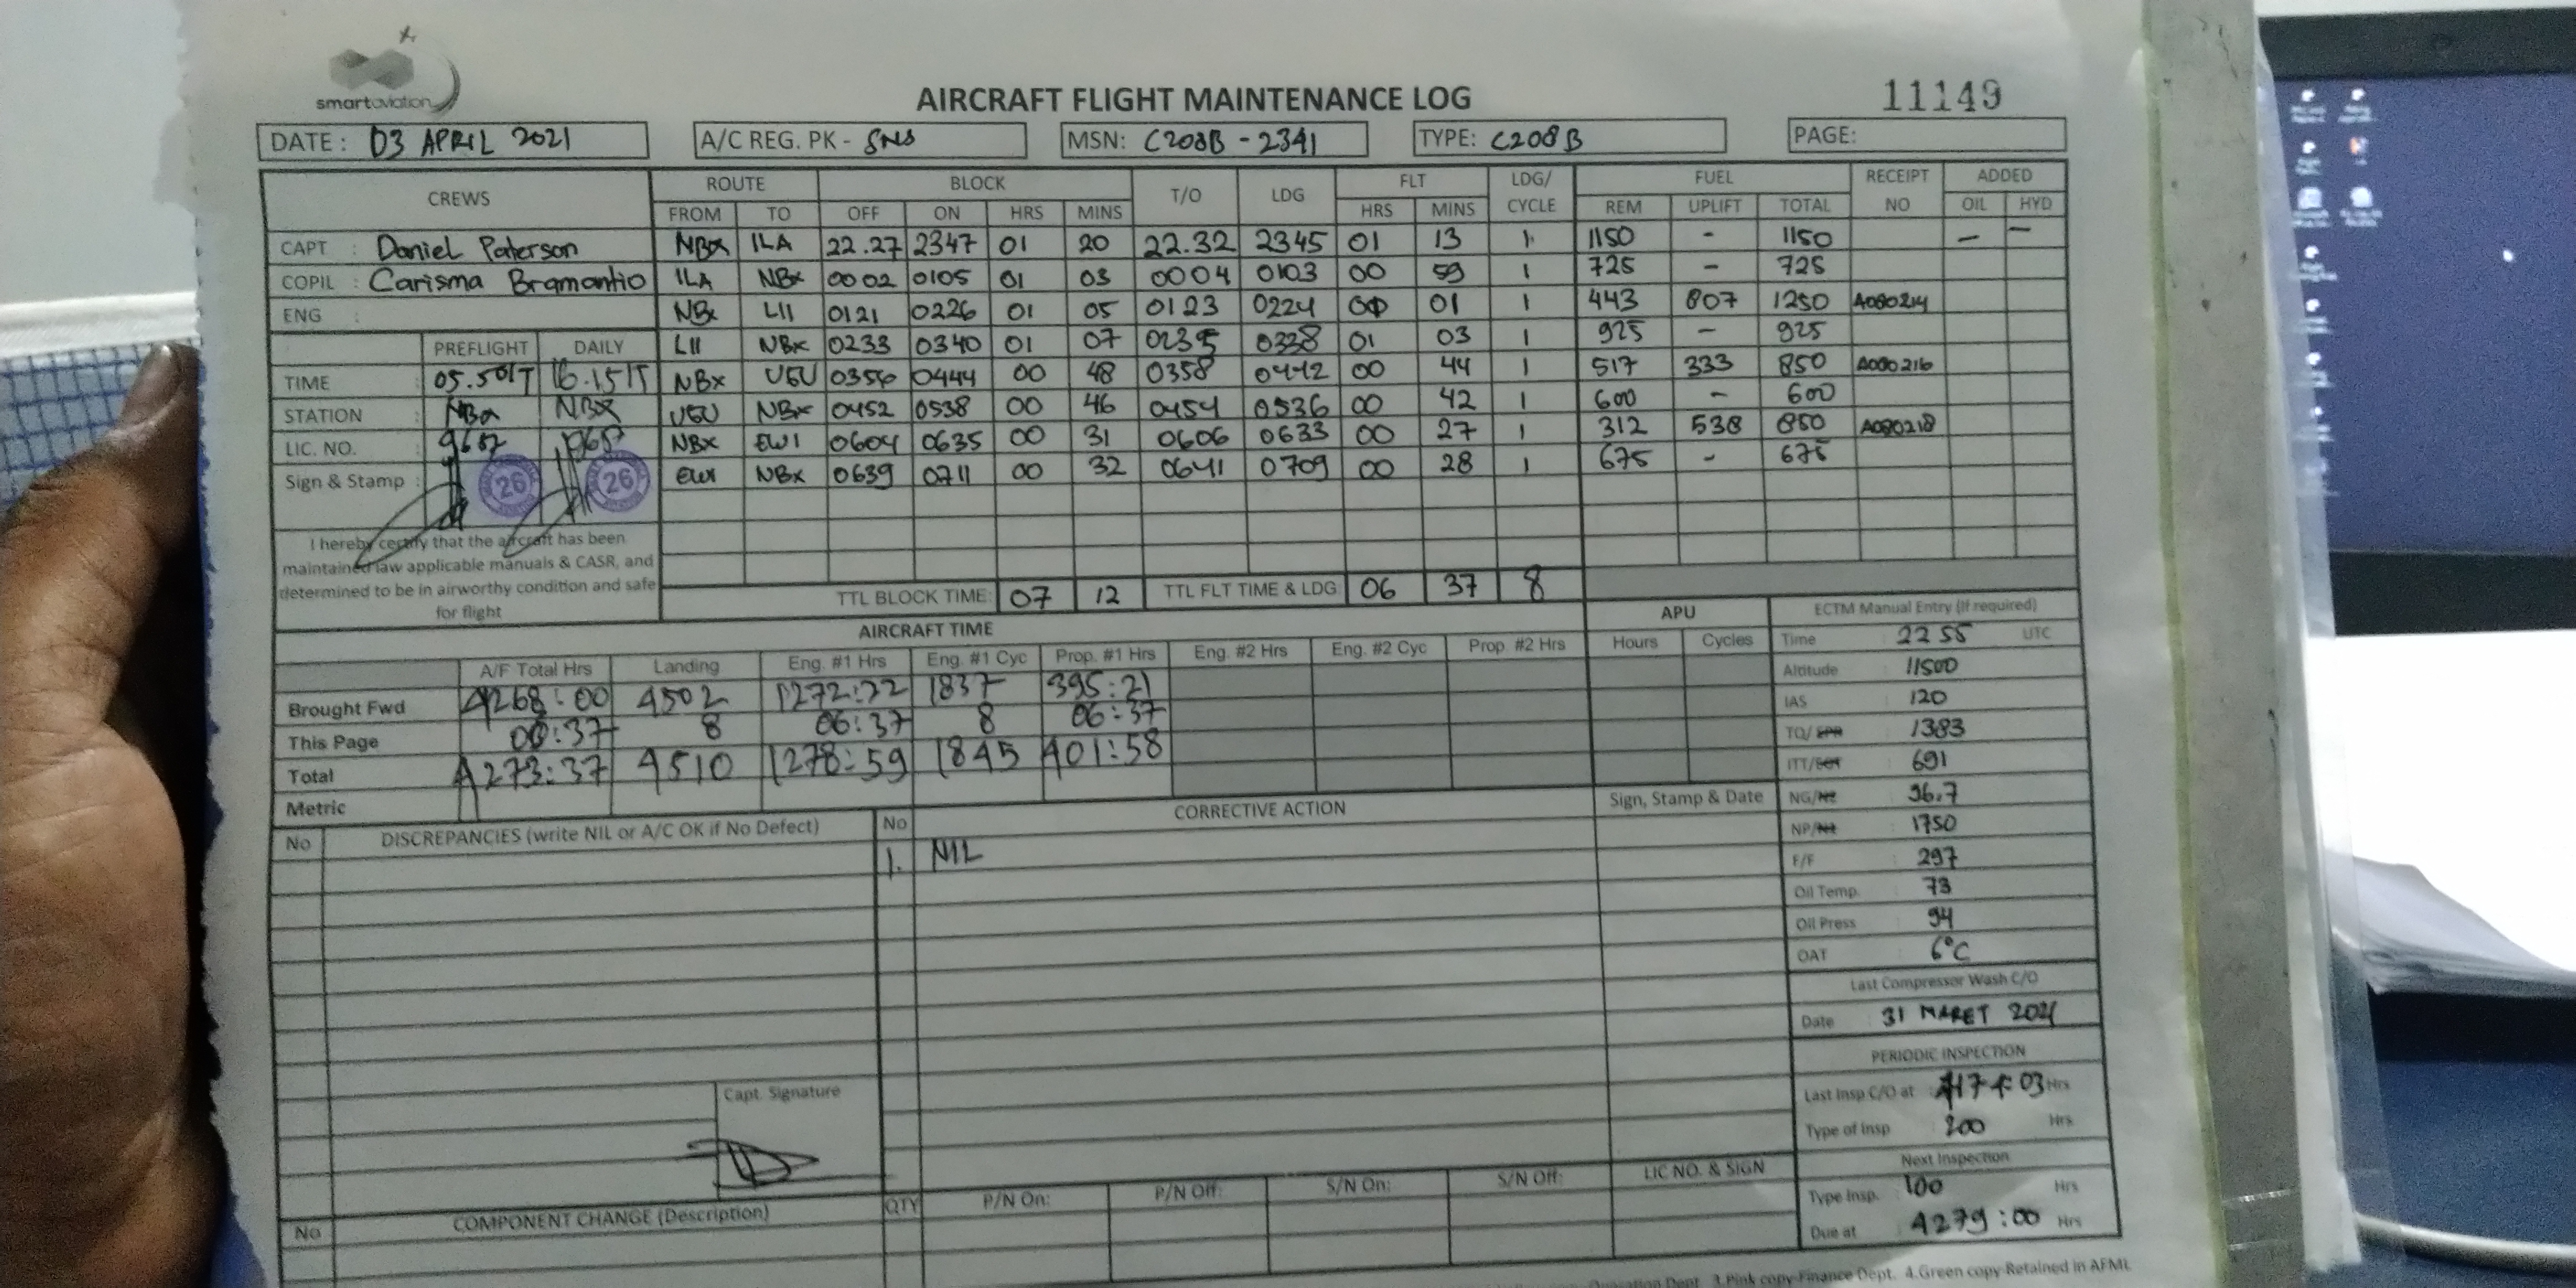 smartaviation
AIRCRAFT FLIGHT MAINTENANCE LOG
11149
DATE : 03 APRIL 2021 A/C REG. PK - SNS MSN: C208B - 2341 TYPE: C208B PAGE:
CREWS ROUTE BLOCK T/O LDG FLT LDG/ CYCLE FUEL RECEIPT NO ADDED
FROM TO OFF ON HRS MINS HRS MINS REM UPLIFT TOTAL OIL HYD
CAPT : Daniel Paterson NBX ILA 22.27 2347 01 20 22.32 2345 01 13 1 1150 - 1150 - -
COPIL : Carisma Bramantio ILA NBX 0002 0105 01 03 0004 0103 00 59 1 725 - 725
ENG : NBX LII 0121 0226 01 05 0123 0224 01 1 443 807 1250 A080214
LII NBX 0233 0340 01 07 0235 0338 01 03 1 925 - 925
PREFLIGHT DAILY
TIME : 05.50IT 16.15IT NBX UGU 0356 0444 00 48 0358 0442 00 44 1 517 333 850 A080216
STATION : NBX NBX UGU NBX 0452 0538 00 46 0454 0536 00 42 1 600 - 600
LIC. NO. : 9687 NBX EWI 0604 0635 00 31 0606 0633 00 27 1 312 538 850 A080218
Sign & Stamp : 26 26 EWI NBX 0639 0711 00 32 0641 0709 00 28 1 675 - 675
I hereby certify that the aircraft has been
maintained law applicable manuals & CASR, and
determined to be in airworthy condition and safe
for flight
TTL BLOCK TIME: 07 12 TTL FLT TIME & LDG: 06 37 8
AIRCRAFT TIME APU
A/F Total Hrs Landing Eng. #1 Hrs Eng. #1 Cyc Prop. #1 Hrs Eng. #2 Hrs Eng. #2 Cyc Prop. #2 Hrs Hours Cycles
Brought Fwd 4268:00 4502 1272:22 1837 395:21
This Page :37 8 06:37 8 06:37
Total 4273:37 4510 1278:59 1845 401:58
Metric
ECTM Manual Entry (If required)
Time : 22 55 UTC
Altitude : 11500
IAS : 120
TQ/EPR : 1383
ITT/EGT : 691
NG/N2 : 96.7
NP/N1 : 1750
F/F : 297
Oil Temp. : 73
Oil Press : 94
OAT : 6°C
Last Compressor Wash C/O
Date : 31 MARET 2021
PERIODIC INSPECTION
Last Insp C/O at : 4174:03 Hrs
Type of Insp : 200 Hrs
Next Inspection
Type Insp. : 100 Hrs
Due at : 4279:00 Hrs
No DISCREPANCIES (write NIL or A/C OK if No Defect) No CORRECTIVE ACTION Sign, Stamp & Date
1. NIL
Capt. Signature
No COMPONENT CHANGE (Description) QTY P/N On: P/N Off: S/N On: S/N Off: LIC NO. & SIGN
Dept. 3.Pink copy-Finance Dept. 4.Green copy-Retained in AFML